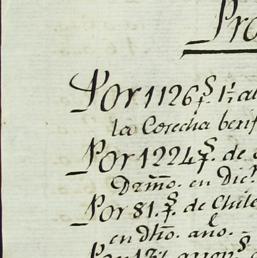 Pro
Por 1126 f.s 1½ a
la Cosecha benf
Por 1224 f.s de
Dzmo. en Dic
Por 81. f.s de Chile
en dho. año.
Por